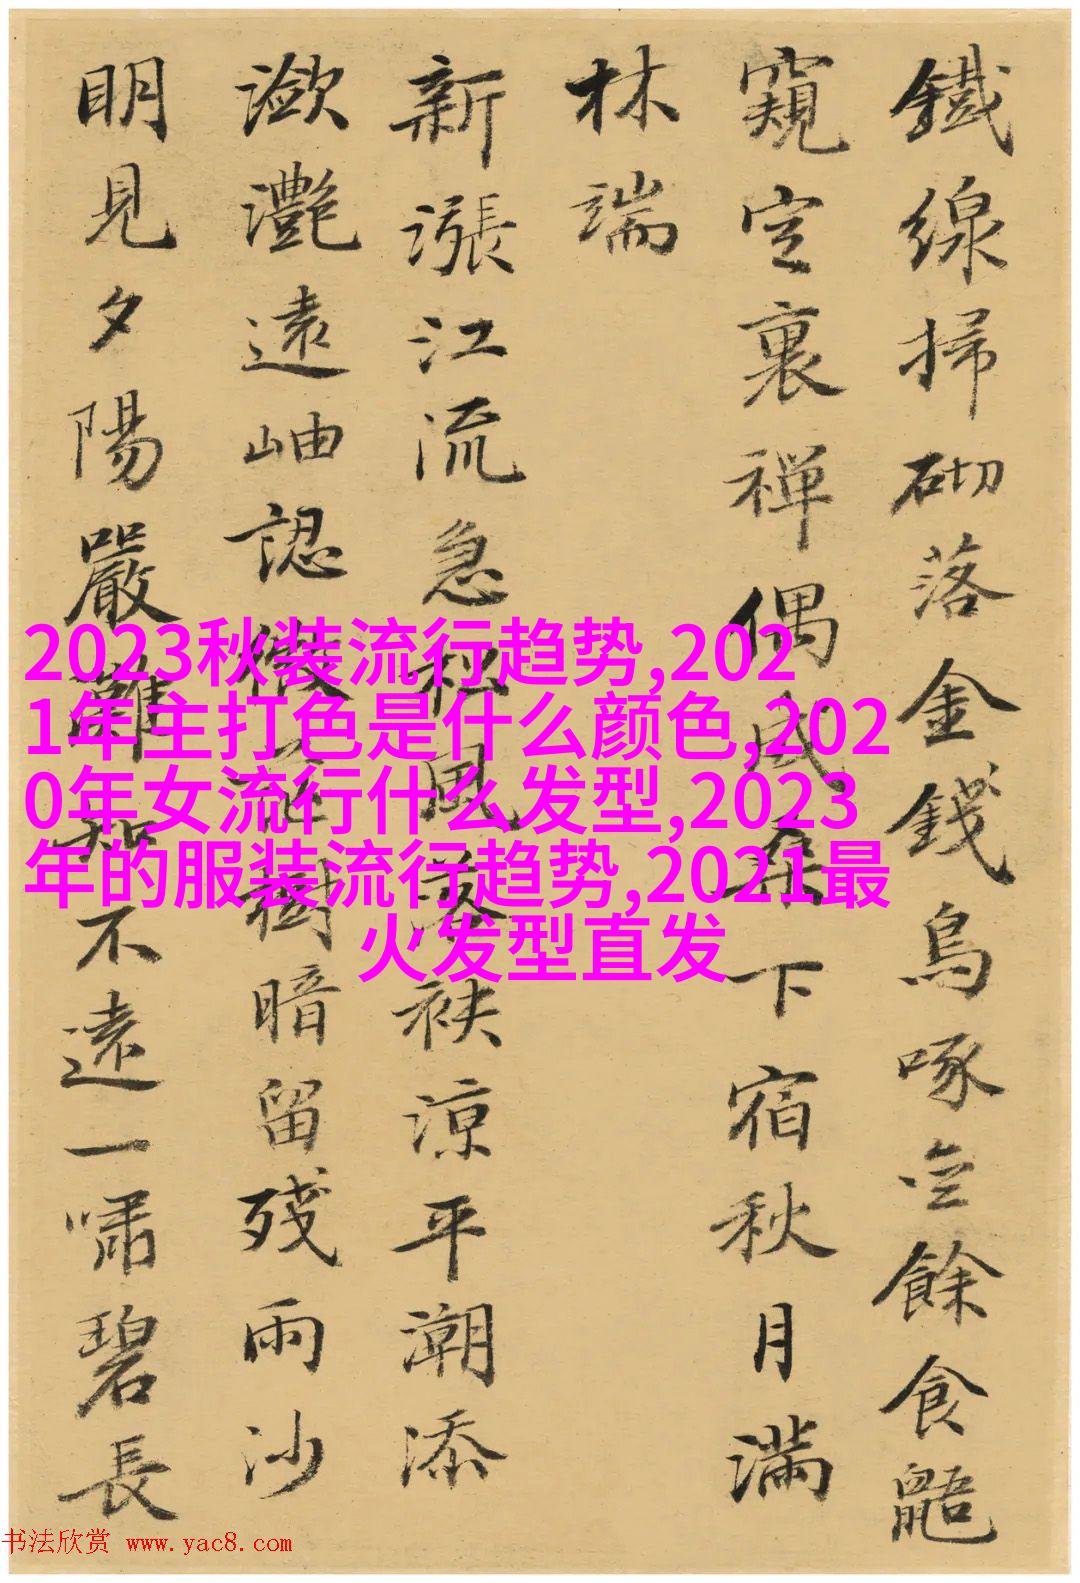 鐵線掃砌落金錢烏啄空餘食鼯
窺空裏禪偶成桑下宿秋月滿
林端
新漲江流急秋風落袂涼平潮添
瀲灧遠岫認微茫樹暗留殘雨沙
明見夕陽嚴灘知不遠一嘯碧長
2023秋装流行趋势,202
1年主打色是什么颜色,202
0年女流行什么发型,2023
年的服装流行趋势,2021最
火发型直发
书法欣赏 www.yac8.com